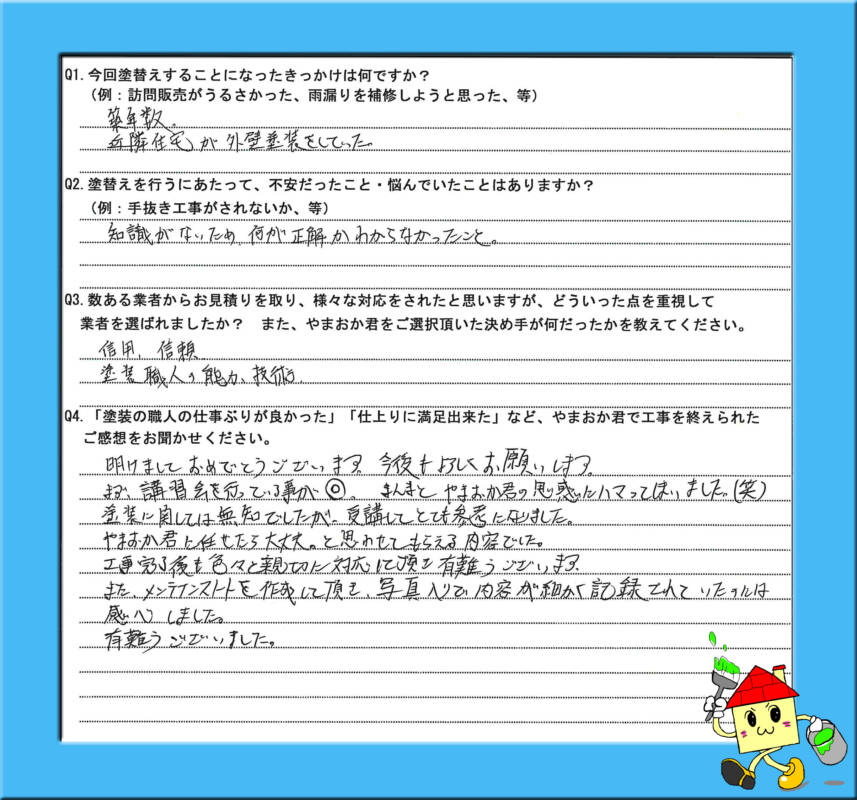 Q1. 今回塗替えすることになったきっかけは何ですか？
（例：訪問販売がうるさかった、雨漏りを補修しようと思った、等）
築年数。
近隣住宅が外壁塗装をしていた。
Q2. 塗替えを行うにあたって、不安だったこと・悩んでいたことはありますか？
（例：手抜き工事がされないか、等）
知識がないため、何が正解かわからなかったこと。
Q3. 数ある業者からお見積りを取り、様々な対応をされたと思いますが、どういった点を重視して
業者を選ばれましたか？　また、やまおか君をご選択頂いた決め手が何だったかを教えてください。
信用、信頼
塗装職人の能力、技術。
Q4. 「塗装の職人の仕事ぶりが良かった」「仕上りに満足出来た」など、やまおか君で工事を終えられた
ご感想をお聞かせください。
明けましておめでとうございます。今後もよろしくお願いします。
まず、講習会を行っている事が◎。まんまとやまおか君の思惑にハマってしまいました。（笑）
塗装に関しては無知でしたが、受講してとても参考になりました。
やまおか君に任せたら大丈夫。と思わせてもらえる内容でした。
工事完了後も色々と親切に対応して頂き有難うございます。
また、メンテナンスノートを作成して頂き、写真入りで内容が細かく記録されていたのには
感心しました。
有難うございました。